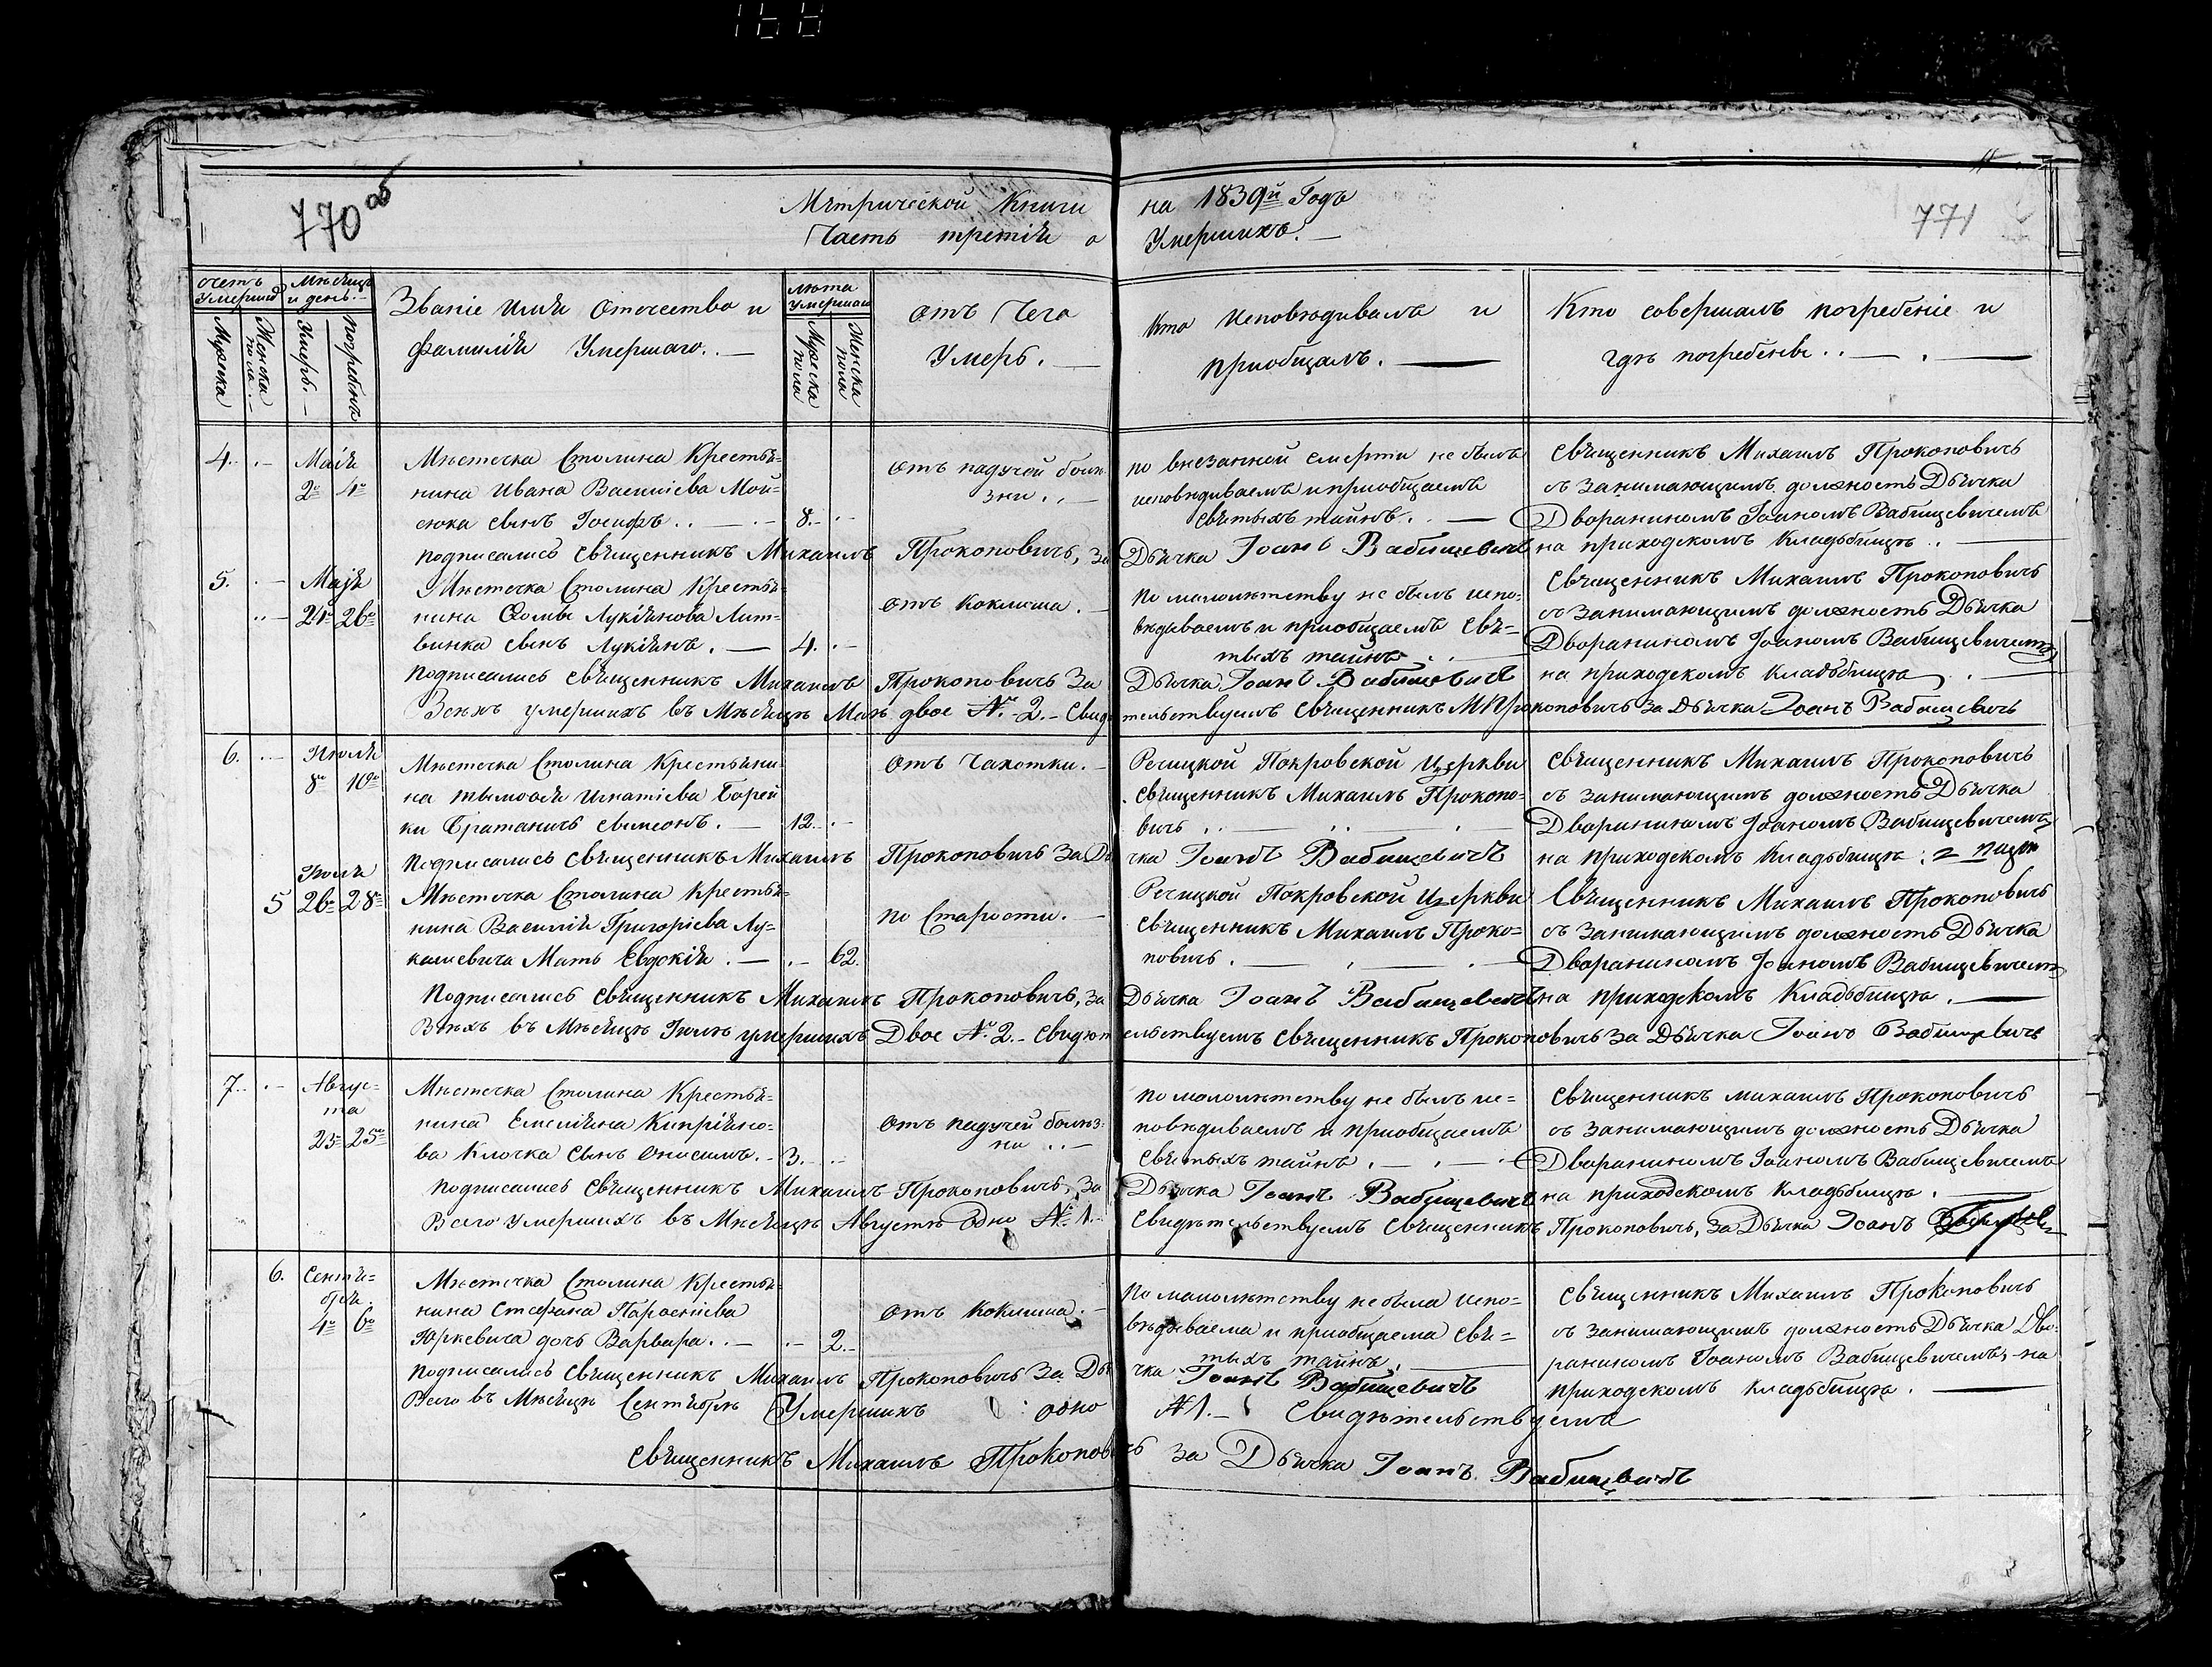 168
770 об
Метрической Книги на 1839й Годъ
771
Часть третія о Умершихъ.
Счетъ Умершихъ
Мѣсяцъ и день.
Званіе Имя Отечество и
фамилія Умершаго.
Лѣта Умершаго
Отъ Чего
Умеръ.
Кто Исповѣдывалъ и
приобщалъ.
Кто совершалъ погребеніе и
гдѣ погребены.
Мужеска
Женска пола.
Умеръ.
Погребенъ
Мужеска пола
Женска пола
4. Маія
2го 4го
Мѣстечка Столина Крестья=
нина Ивана Василіева Мой=
сюка сынъ Іосифъ.
8.
отъ падучей болѣ
зни.
по внезапной смерти не былъ
исповѣдываемъ и приобщаемъ
святыхъ тайнъ.
Священникъ Михаилъ Прокоповичъ
съ занимающимъ должность Дьячка
Дворяниномъ Іоаномъ Вабищевичемъ
на приходскомъ кладьбищѣ.
подписались Священникъ Михаилъ Прокоповичъ, За Дьячка Іоанъ Вабищевичъ
5. Маія
24го 26го
Мѣстечка Столина Крестья
нина Ѳомы Лукіянова Лит=
винка сынъ Лукіянъ.
4.
отъ Коклюша.
По малолѣтству не былъ испо=
вѣдываемъ и приобщаемъ Свя=
тыхъ тайнъ
Священникъ Михаилъ Прокоповичъ
съ занимающимъ должность Дьячка
Дворяниномъ Іоаномъ Вабищевичемъ
на приходскомъ кладьбищѣ
подписались Священникъ Михаилъ Прокоповичъ За Дьячка Іоанъ Вабищевичъ
Всѣхъ умершихъ въ Мѣсяцѣ Маѣ двое № 2. Свидѣтельствуемъ Священникъ М Прокоповичъ За Дьячка Іоанъ Вабищевичъ
6. Іюля
8го 10го
Мѣстечка Столина Крестьяни
на Тымофѣя Игнатіева Борей
ки Братаничъ Симеонъ.
12.
отъ Чахотки.
Речицкой Покровской Церкви
Священникъ Михаилъ Прокопо=
вичъ
Священникъ Михаилъ Прокоповичъ
съ занимающимъ должность Дьячка
Дворяниномъ Іоаномъ Вабищевичемъ
на приходскомъ Кладьбищѣ
подписались Священникъ Михаилъ Прокоповичъ За Дьячка Іоанъ Вабищевичъ
5 Іюля
26го 28го
Мѣстечка Столина Крестья=
нина Василія Григоріева Лу=
кашевича Мать Евдокія.
62.
по Старости.
Речицкой Покровской Церкви
Священникъ Михаилъ Проко=
повичъ.
Священникъ Михаилъ Прокоповичъ
съ занимающимъ должность Дьячка
Дворяниномъ Іоаномъ Вабищевичемъ
на приходскомъ Кладьбищѣ.
Подписались Священникъ Михаилъ Прокоповичъ, За Дьячка Іоанъ Вабищевичъ
Всѣхъ въ Мѣсяцѣ Іюлѣ умершихъ Двое № 2. Свидѣтельствуемъ Священникъ Прокоповичъ За Дьячка Іоанъ Вабищевичъ
7. Авгус=
та
23го 25го
Мѣстечка Столина Крестья=
нина Емеліяна Кипріяно=
ва Клочка Сынъ Онисимъ.
3.
отъ падучей болѣз
ни
по малолѣтству не былъ ис=
повѣдываемъ и приобщаемъ
Святыхъ тайнъ.
Священникъ Михаилъ Прокоповичъ
съ занимающимъ должность Дьячка
Дворяниномъ Іоаномъ Вабищевичемъ
на приходскомъ кладьбищѣ.
подписались Священникъ Михаилъ Прокоповичъ, За Дьячка Іоанъ Вабищевичъ
Всего умершихъ въ Мѣсяцѣ Августѣ Одно № 1. Свидѣтельствуемъ Священникъ Прокоповичъ, За Дьячка Іоанъ
6. Сентя=
бря.
4го 6го
Мѣстечка Столина Крестья
нина Стефана Парѳеніева
Юркевича дочь Варвара.
2.
отъ Коклюша.
По малолѣтству не была испо=
вѣдываема и приобщаема Свя=
тыхъ тайнъ.
Священникъ Михаилъ Прокоповичъ
съ занимающимъ должность Дьячка Дво
ряниномъ Іоаномъ Вабищевичемъ, на
приходскомъ кладьбищѣ.
подписались Священникъ Михаилъ Прокоповичъ За Дьячка Іоанъ Вабищевичъ
Всего въ Мѣсяцѣ Сентябрѣ Умершихъ одно № 1. Свидѣтельствуемъ
Священникъ Михаилъ Прокоповичъ За Дьячка Іоанъ Вабищевичъ